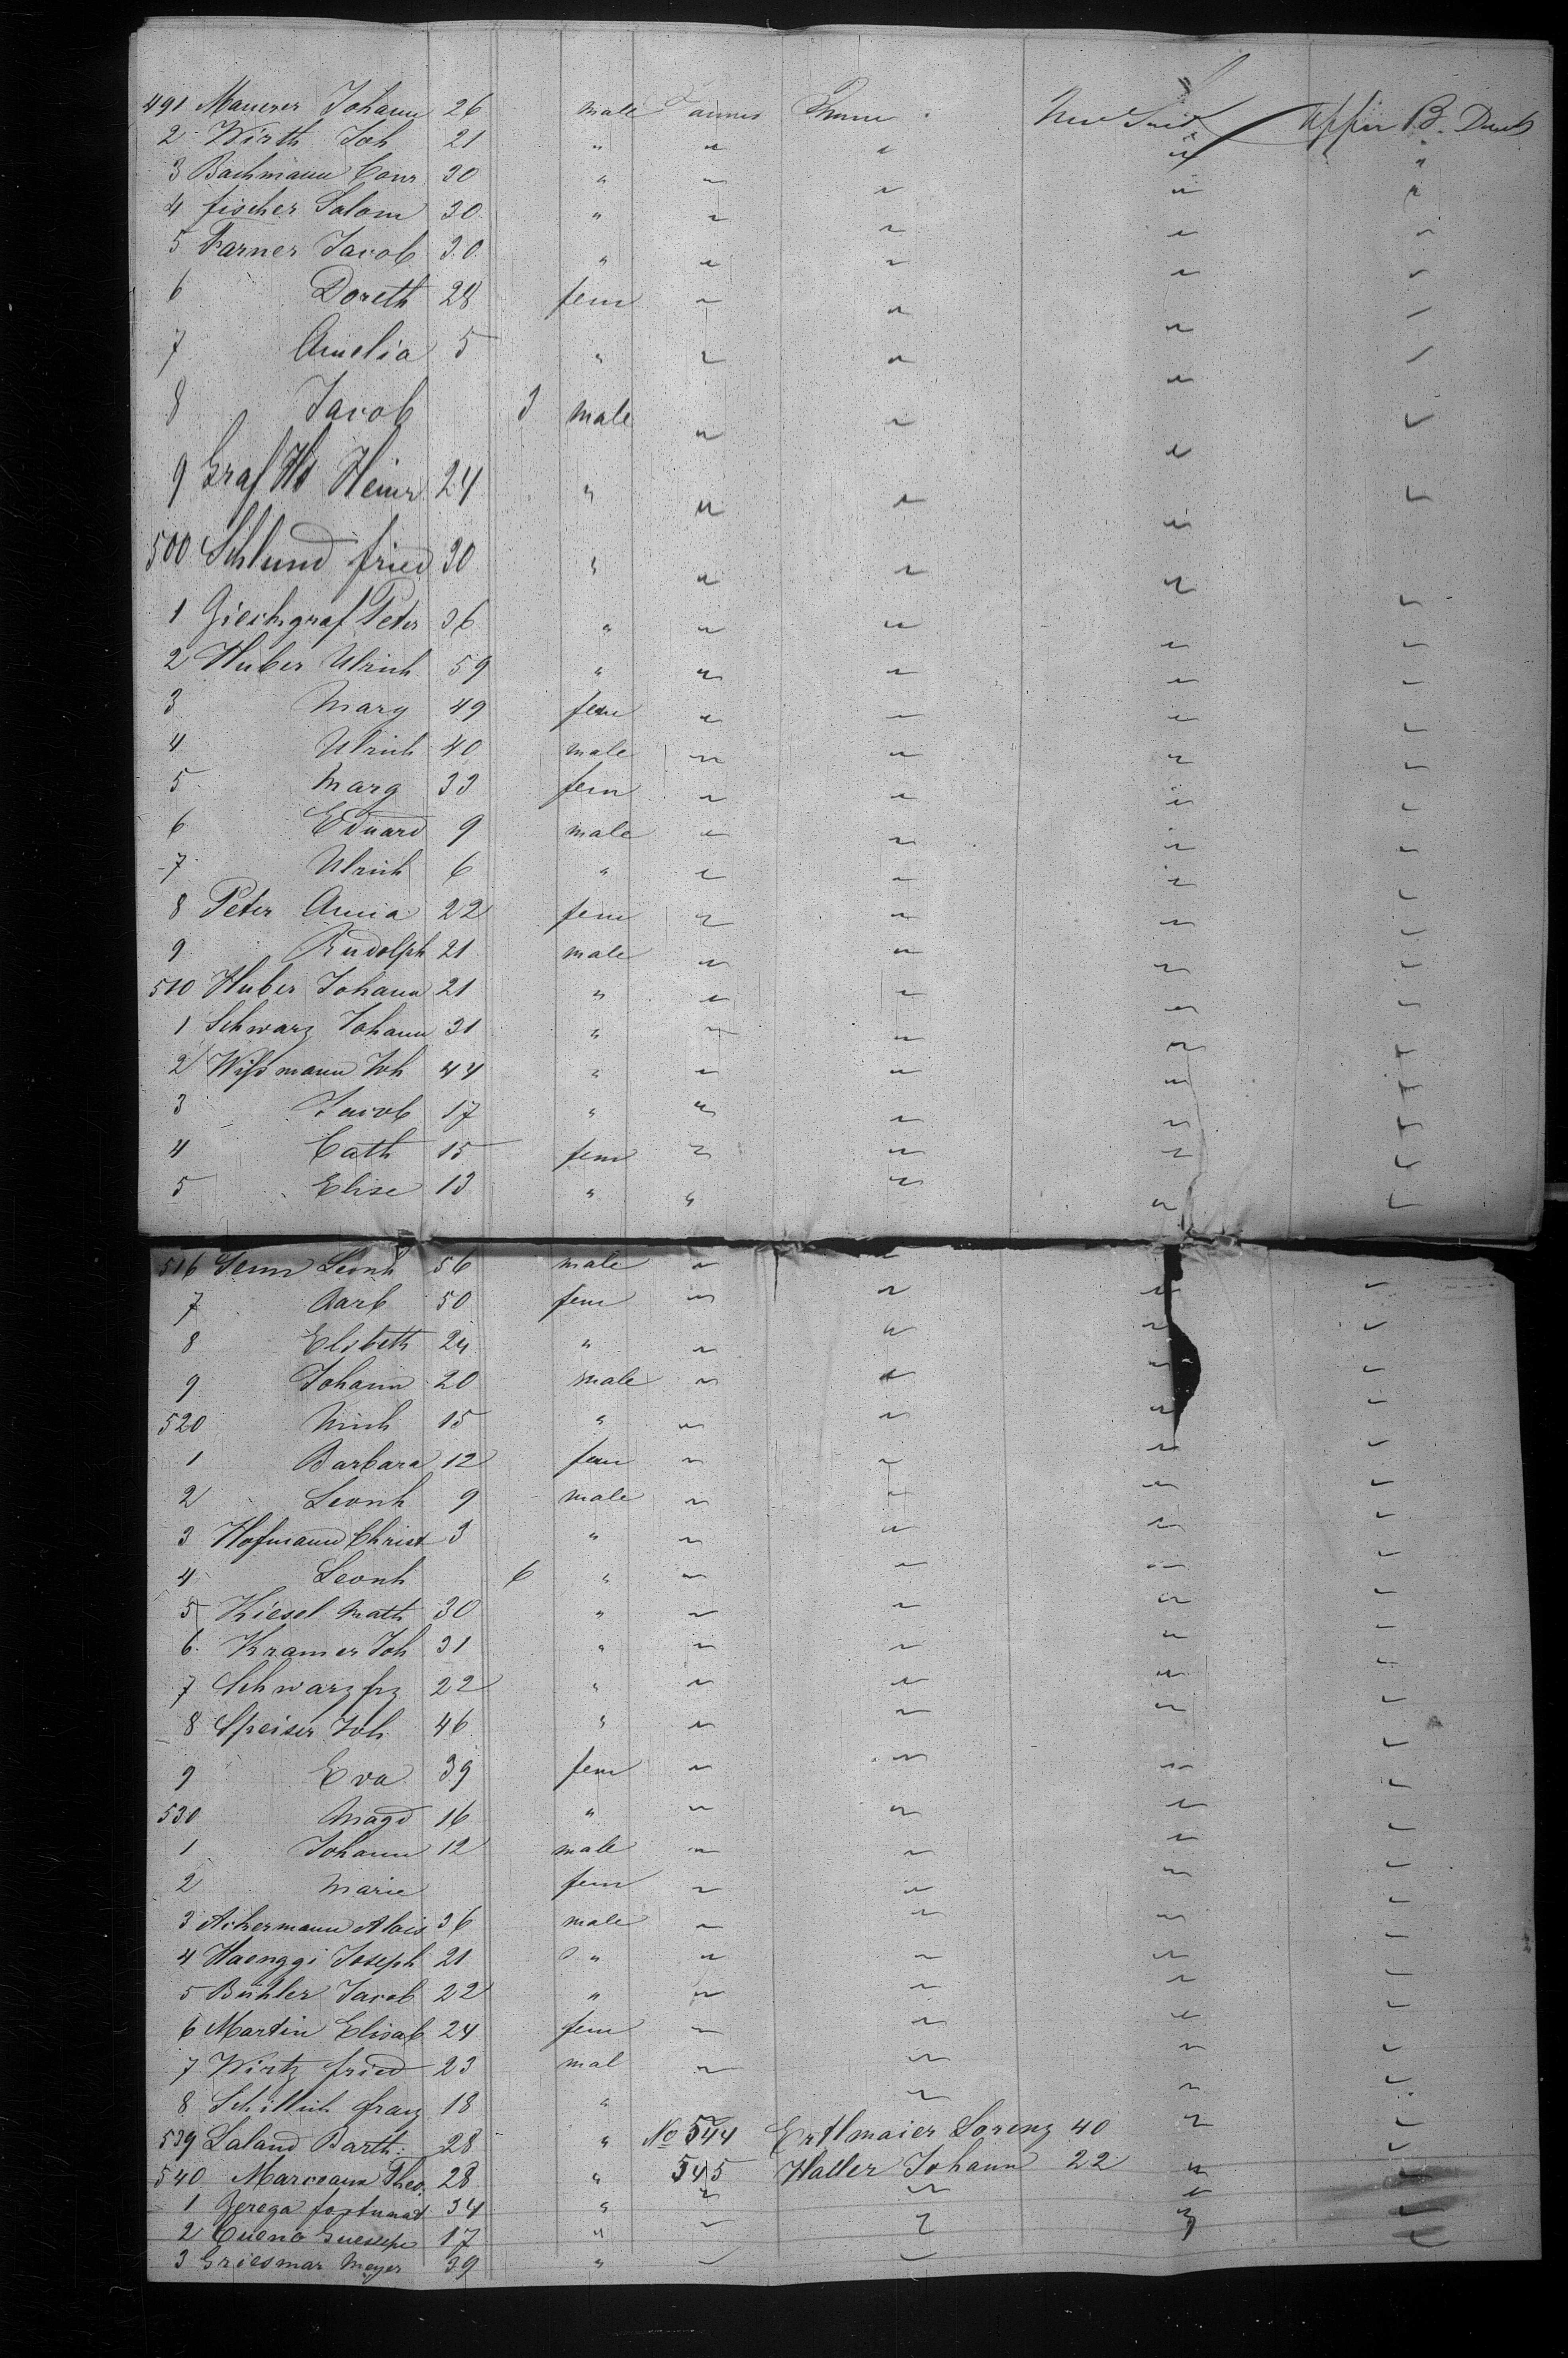 491 Maurer Johann 26 male Farmer New Switz Upper B. Deck
2 Wirth Joh 21 " " " " "
3 Bachmann Conr 30 " " " " "
4 Fischer Salom 30 " " " " "
5 Farner Jacob 30 " " " " "
6 Doreth 28 fem " " " "
7 Amelia 5 " " " " "
8 Jacob 3 male " " " "
9 Graf Hs Heinr 24 " " " " "
500 Schlund Fried 30 " " " " "
1 Giechgraf Peter 36 " " " " "
2 Huber Ulrich 59 " " " " "
3 Marg 49 fem " " " "
4 Ulrich 40 male " " " "
5 Marg 33 fem " " " "
6 Eduard 9 male " " " "
7 Ulrich 6 " " " " "
8 Peter Anna 22 fem " " " "
9 Rudolph 21 male " " " "
510 Huber Johann 21 " " " " "
1 Schwarz Johann 31 " " " " "
2 Wißmann Joh 44 " " " " "
3 Jacob 17 " " " " "
4 Cath 15 fem " " " "
5 Elise 13 " " " " "
516 Senn Leonh 56 male " " " "
7 Barb 50 fem " " " "
8 Elsbeth 24 " " " " "
9 Johann 20 male " " " "
520 Ulrich 15 " " " " "
1 Barbara 12 fem " " " "
2 Leonh 9 male " " " "
3 Hofmann Christ 3 " " " " "
4 Leonh 6 " " " " "
5 Kiesel Math 30 " " " " "
6 Kramer Joh 31 " " " " "
7 Schwarz frz 22 " " " " "
8 Speiser Joh 46 " " " " "
9 Eva 39 fem " " " "
530 Magd 16 " " " " "
1 Johann 12 male " " " "
2 Marie fem " " " "
3 Ackermann Alois 36 male " " " "
4 Haenggi Joseph 21 " " " " "
5 Bühler Jacob 22 " " " " "
6 Martin Elisab 24 fem " " " "
7 Wirtz fried 23 mal " " " "
8 Schillich franz 18 " " " "
539 Laland Barth: 28 " No 544 Ertlmaier Lorenz 40 " "
540 Marceaux Theo. 28 " 545 Haller Johann 22 " "
1 Zerega fortunat 34 " " " " "
2 Cueno Guesepe 17 " " " " "
3 Griesmar Meyer 39 " " "